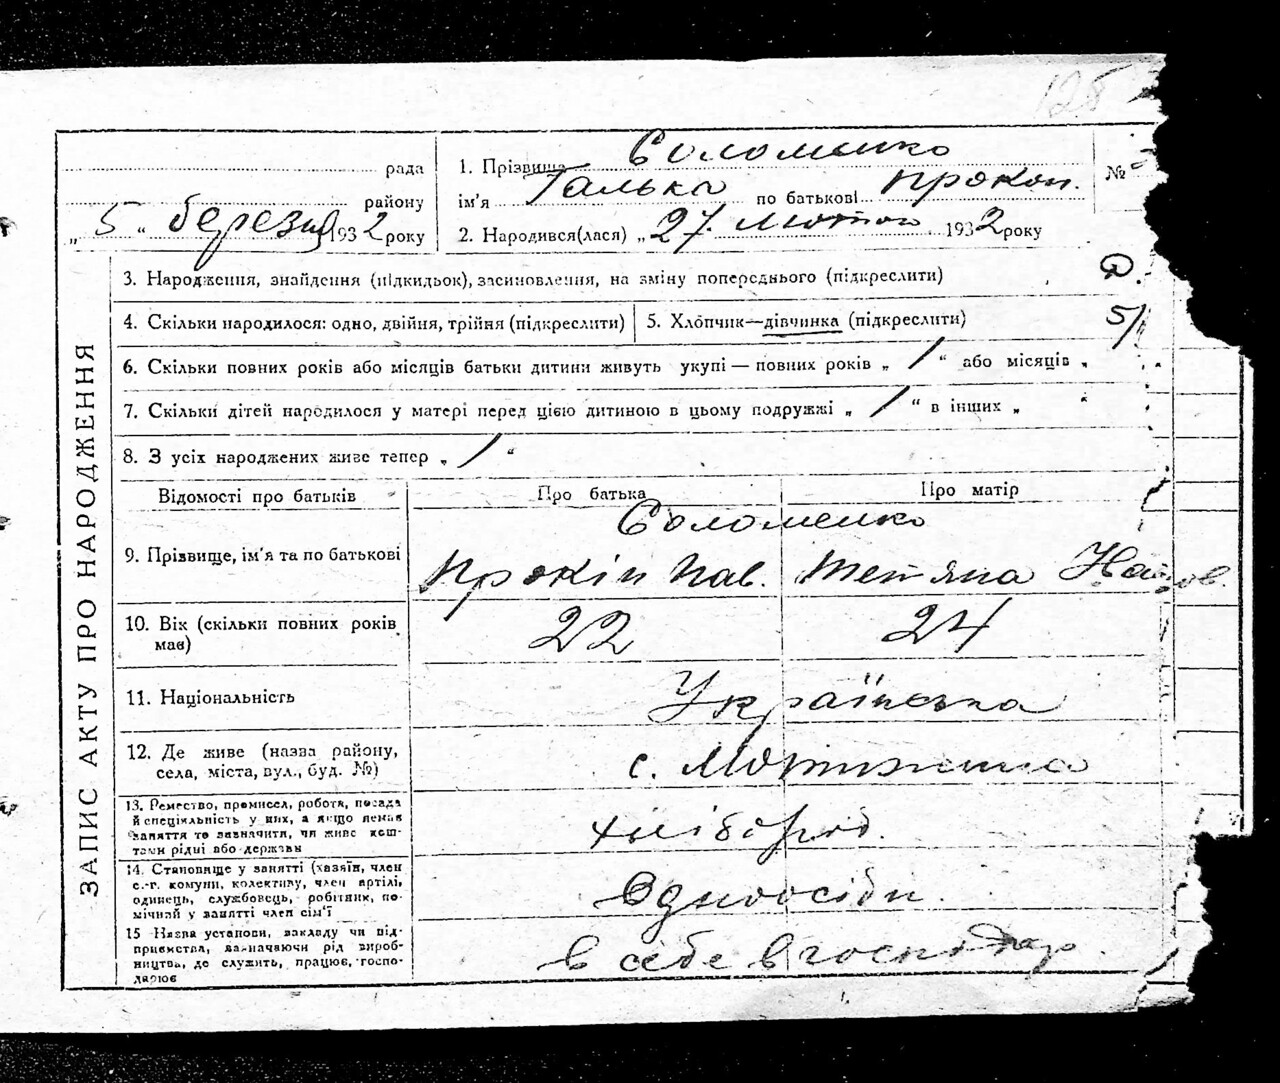 128
рада
району
„ 5 “ березня 1932 року
1. Прізвище Соломенко
ім'я Галька по батькові Прокоп.
№
2. Народився(лася) „27. Лютого 1932 року
ЗАПИС АКТУ ПРО НАРОДЖЕННЯ
3. Народження, знайдення (підкидьок), засиновлення, на зміну попереднього (підкреслити)
4. Скільки народилося: одно, двійня, трійня (підкреслити)
5. Хлопчик—дівчинка (підкреслити)
5/
6. Скільки повних років або місяців батьки дитини живуть укупі — повних років „ / “ або місяців „
7. Скільки дітей народилося у матері перед цією дитиною в цьому подружжі „ / “ в інших „ “
8. З усіх народжених живе тепер „ / “
Відомості про батьків
Про батька
Про матір
9. Прізвище, ім'я та по батькові
Соломенко
Прокіп Пав.
Тетяна
10. Вік (скільки повних років
має)
22
24
11. Національність
Українська
12. Де живе (назва району,
села, міста, вул., буд. №)
с. Мотижина
13. Ремество, промисел, робота, посада
й спеціяльність у них, а якщо немає
заняття то зазначити, чи живе кош-
тами рідні або держави
хлібороб.
14. Становище у занятті (хазяїн, член
с.-г. комуни, колективу, член артілі,
одинець, службовець, робітник, по-
мічний у занятті член сім'ї
Одноосібн.
15 Назва установи, закладу чи під-
приємства, зазначаючи рід вироб-
ництва, де служить, працює, госпо-
дарює
в себе в господар